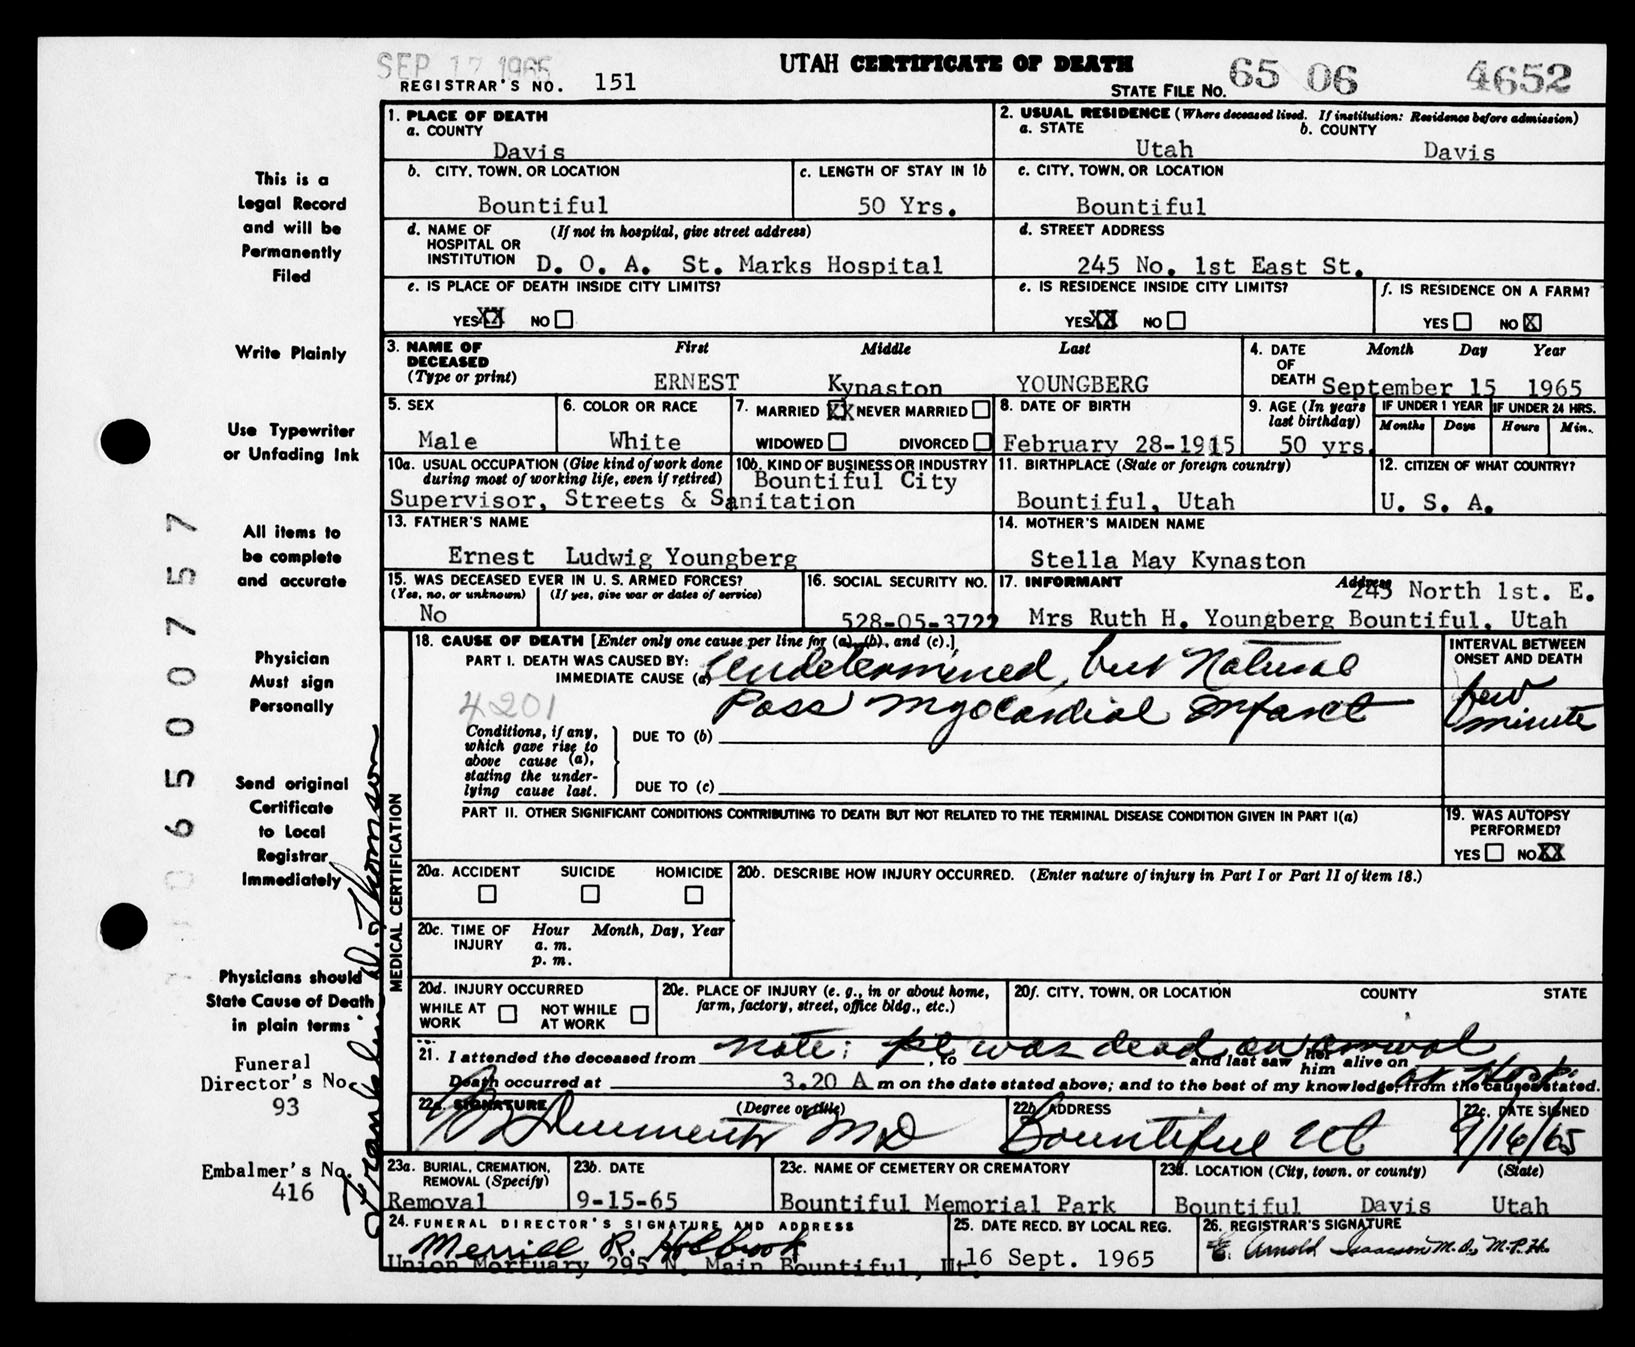 SEP 17 1965
UTAH CERTIFICATE OF DEATH
REGISTRAR'S NO. 151
STATE FILE NO. 65 06 4652
1. PLACE OF DEATH
a. COUNTY
Davis
2. USUAL RESIDENCE (Where deceased lived. If institution: Residence before admission)
a. STATE
Utah
b. COUNTY
Davis
b. CITY, TOWN, OR LOCATION
Bountiful
c. LENGTH OF STAY IN 1b
50 Yrs.
c. CITY, TOWN, OR LOCATION
Bountiful
d. NAME OF HOSPITAL OR INSTITUTION
(If not in hospital, give street address)
D. O. A. St. Marks Hospital
d. STREET ADDRESS
245 No. 1st East St.
e. IS PLACE OF DEATH INSIDE CITY LIMITS?
YES XX NO
e. IS RESIDENCE INSIDE CITY LIMITS?
YES XX NO
f. IS RESIDENCE ON A FARM?
YES NO X
3. NAME OF DECEASED
(Type or print)
First Middle Last
ERNEST Kynaston YOUNGBERG
4. DATE OF DEATH
Month Day Year
September 15 1965
5. SEX
Male
6. COLOR OR RACE
White
7. MARRIED XX NEVER MARRIED
WIDOWED DIVORCED
8. DATE OF BIRTH
February 28-1915
9. AGE (In years last birthday)
50 yrs.
IF UNDER 1 YEAR
Months Days
IF UNDER 24 HRS.
Hours Min.
10a. USUAL OCCUPATION (Give kind of work done during most of working life, even if retired)
Supervisor, Streets & Sanitation
10b. KIND OF BUSINESS OR INDUSTRY
Bountiful City
11. BIRTHPLACE (State or foreign country)
Bountiful, Utah
12. CITIZEN OF WHAT COUNTRY?
U. S. A.
13. FATHER'S NAME
Ernest Ludwig Youngberg
14. MOTHER'S MAIDEN NAME
Stella May Kynaston
15. WAS DECEASED EVER IN U. S. ARMED FORCES?
(Yes, no, or unknown) (If yes, give war or dates of service)
No
16. SOCIAL SECURITY NO.
528-05-3722
17. INFORMANT Address
245 North 1st. E.
Mrs Ruth H. Youngberg Bountiful, Utah
MEDICAL CERTIFICATION
18. CAUSE OF DEATH [Enter only one cause per line for (a), (b), and (c).]
PART I. DEATH WAS CAUSED BY:
IMMEDIATE CAUSE (a) Undetermined, but Natural
Poss Myocardial Infarct
4201
INTERVAL BETWEEN ONSET AND DEATH
few minute
Conditions, if any, which gave rise to above cause (a), stating the underlying cause last.
DUE TO (b)
DUE TO (c)
PART II. OTHER SIGNIFICANT CONDITIONS CONTRIBUTING TO DEATH BUT NOT RELATED TO THE TERMINAL DISEASE CONDITION GIVEN IN PART I(a)
19. WAS AUTOPSY PERFORMED?
YES NO XX
20a. ACCIDENT SUICIDE HOMICIDE
20b. DESCRIBE HOW INJURY OCCURRED. (Enter nature of injury in Part I or Part II of item 18.)
20c. TIME OF INJURY
Hour Month, Day, Year
a. m.
p. m.
20d. INJURY OCCURRED
WHILE AT WORK NOT WHILE AT WORK
20e. PLACE OF INJURY (e. g., in or about home, farm, factory, street, office bldg., etc.)
20f. CITY, TOWN, OR LOCATION COUNTY STATE
Note: pt was dead on arrival
at Hosp.
21. I attended the deceased from , to and last saw her him alive on
Death occurred at 3.20 A m on the date stated above; and to the best of my knowledge, from the causes stated.
22a. SIGNATURE (Degree or title)
MD
22b. ADDRESS
Bountiful Ut
22c. DATE SIGNED
9/16/65
23a. BURIAL, CREMATION, REMOVAL (Specify)
Removal
23b. DATE
9-15-65
23c. NAME OF CEMETERY OR CREMATORY
Bountiful Memorial Park
23d. LOCATION (City, town, or county) (State)
Bountiful Davis Utah
24. FUNERAL DIRECTOR'S SIGNATURE AND ADDRESS
Merrill R. Holbrook
Union Mortuary 295 N. Main Bountiful, Ut.
25. DATE RECD. BY LOCAL REG.
16 Sept. 1965
26. REGISTRAR'S SIGNATURE
E. Arnold Isaacson M.D., M.P.H.
This is a
Legal Record
and will be
Permanently
Filed
Write Plainly
Use Typewriter
or Unfading Ink
All items to
be complete
and accurate
Physician
Must sign
Personally
Send original
Certificate
to Local
Registrar
Immediately
Physicians should
State Cause of Death
in plain terms
Funeral
Director's No.
93
Embalmer's No.
416
Franklin D. Thomson
06500757